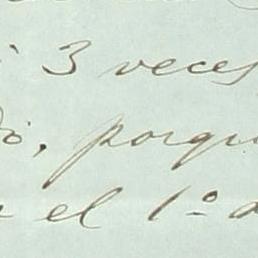 3 veces
, porqu
el 1.º